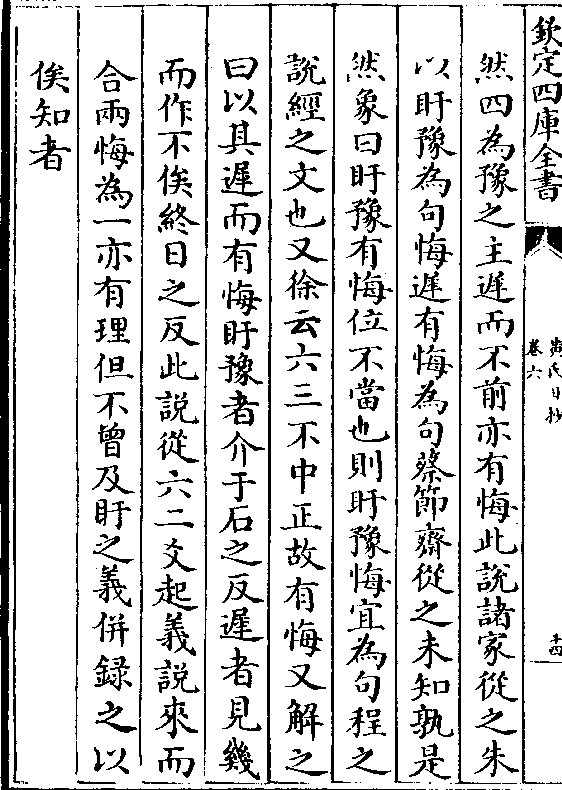 欽定四庫全書
黄氏日抄
卷六
十四
然四為豫之主遲而不前亦有悔此說諸家從之朱
以盱豫為句悔遲有悔為句蔡節齋從之未知孰是
然象曰盱豫有悔位不當也則盱豫悔宜為句程之
說經之文也又徐云六三不中正故有悔又解之
曰以其遲而有悔盱豫者介于石之反遲者見幾
而作不俟終日之反此説從六二爻起義說來而
合兩悔為一亦有理但不曾及盱之義併録之以
俟知者